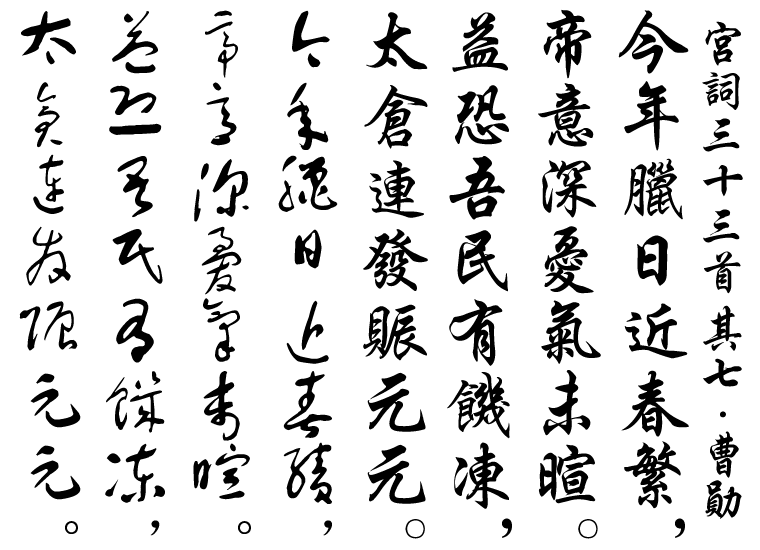 宮詞三十三首 其七·曹勛
今年臘日近春繁，
帝意深憂氣未暄。
益恐吾民有饑凍，
太倉連發賑元元。
今年臘日近春繁，
帝意深憂氣未暄。
益恐吾民有饑凍，
太倉連發賑元元。